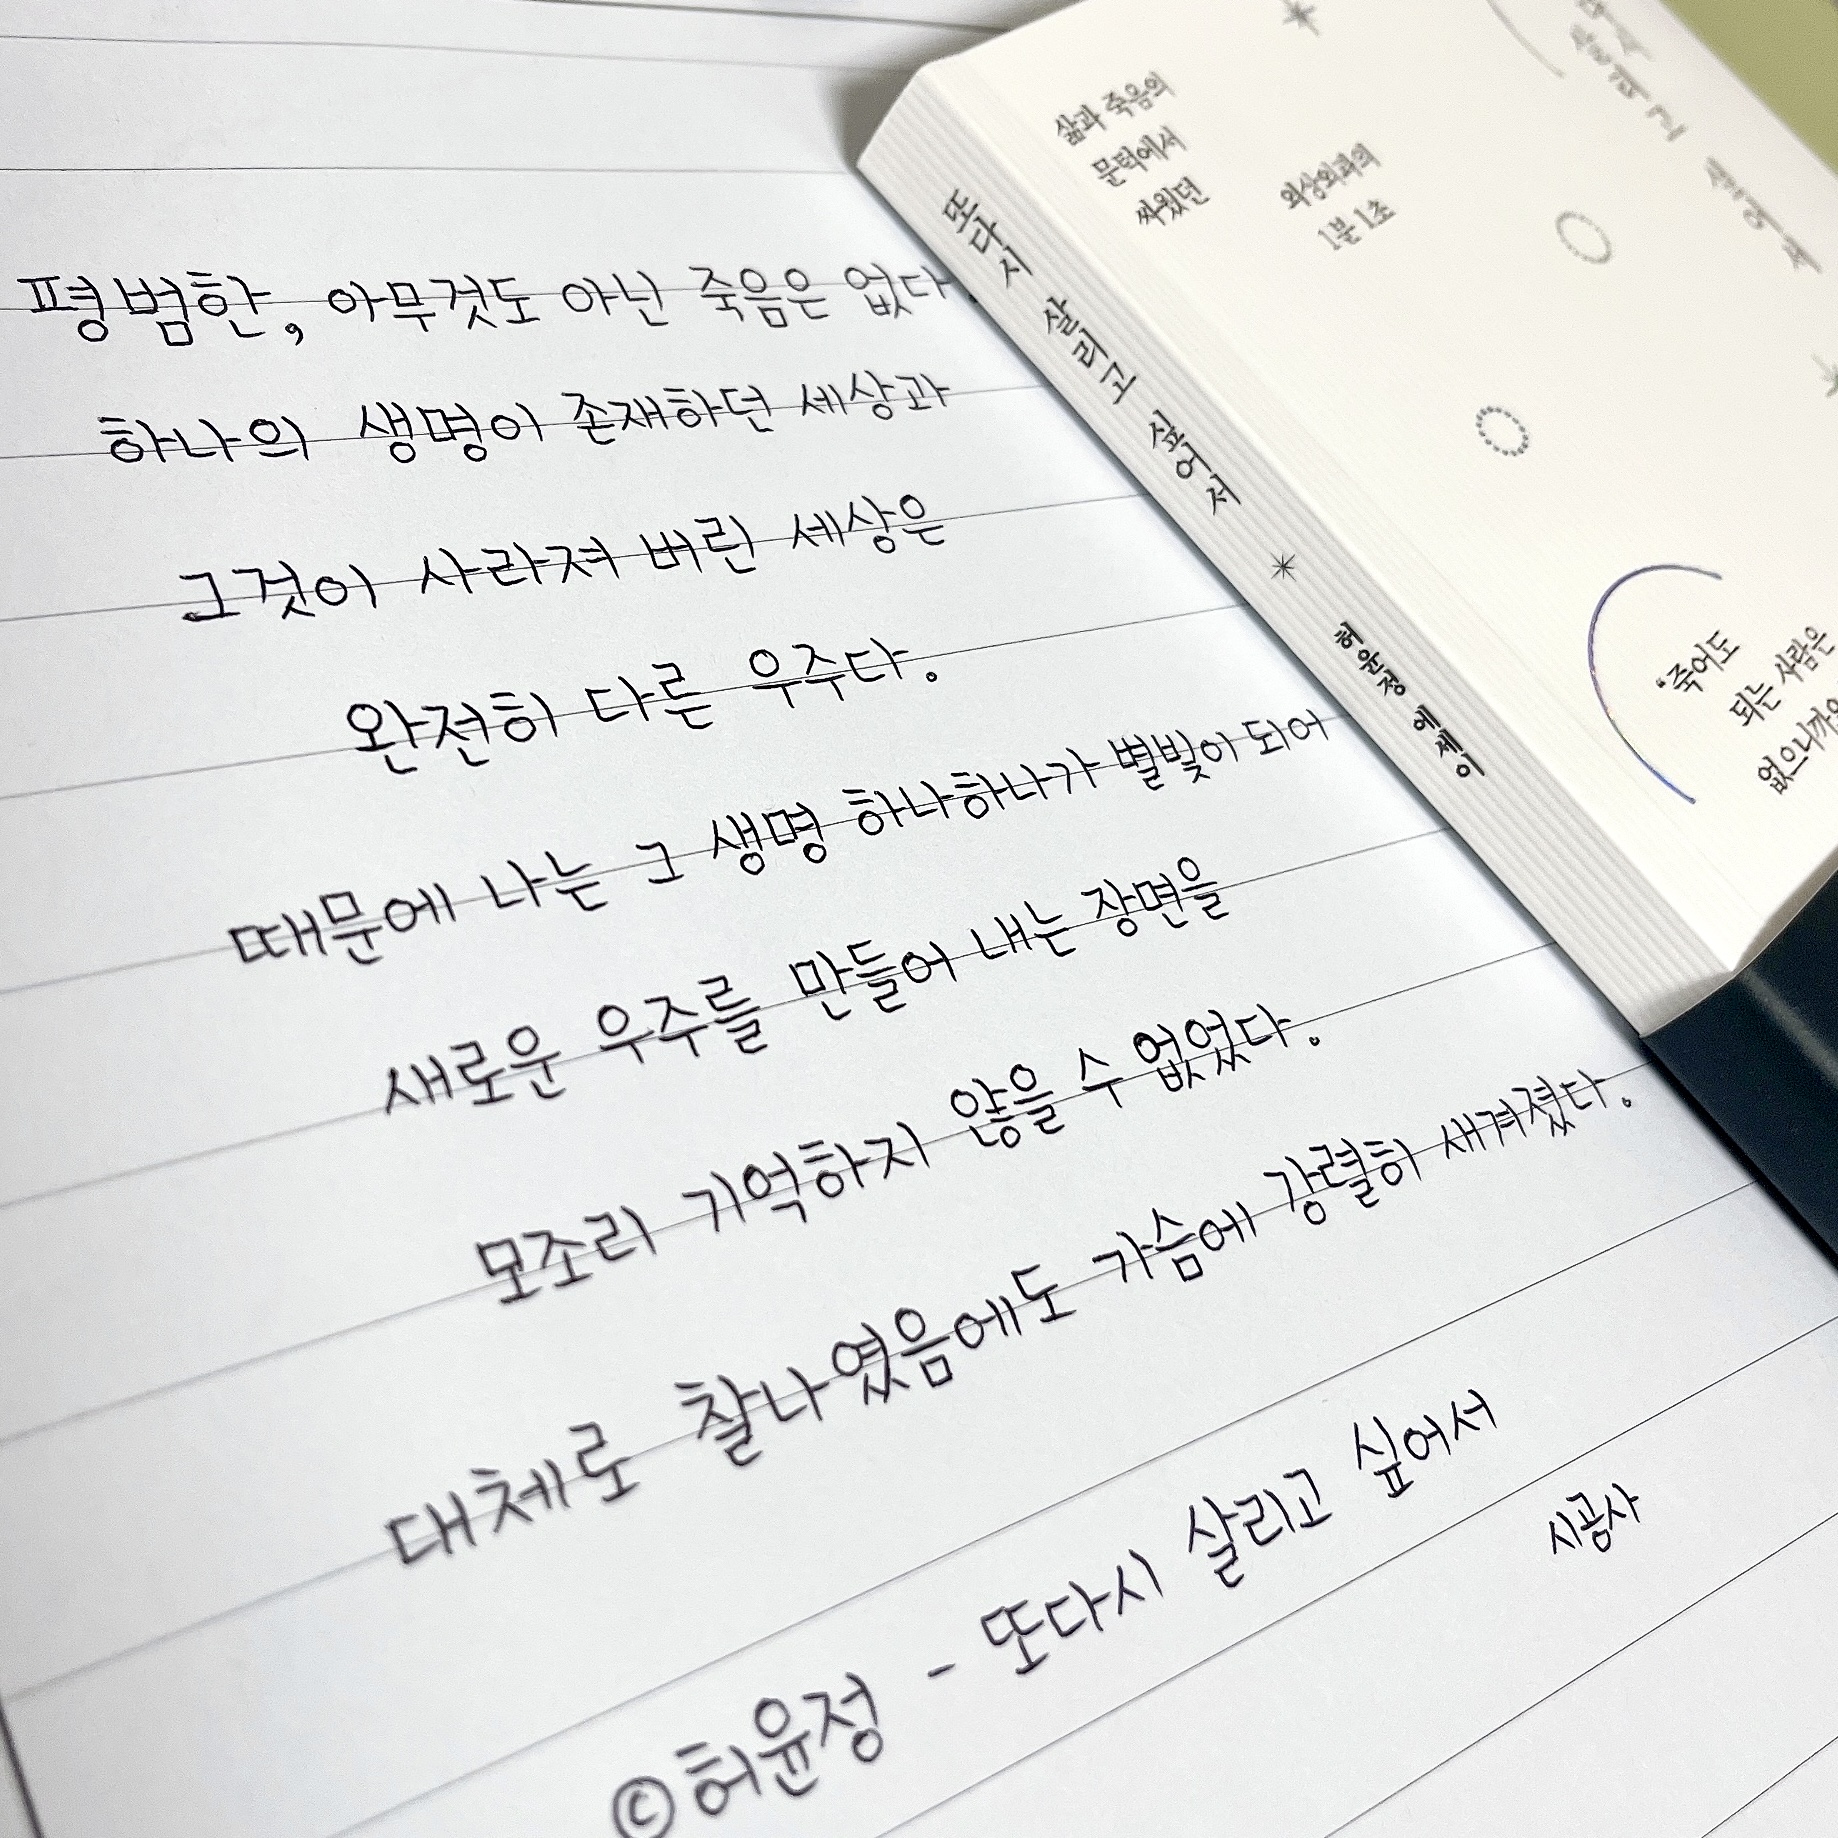 평범한, 아무것도 아닌 죽음은 없다.
하나의 생명이 존재하던 세상과
그것이 사라져 버린 세상은
완전히 다른 우주다.
때문에 나는 그 생명 하나하나가 별빛이 되어
새로운 우주를 만들어 내는 장면을
모조리 기억하지 않을 수 없었다.
대체로 찰나였음에도 가슴에 강렬히 새겨졌다.
©허윤정 - 또다시 살리고 싶어서
시공사
또다시 살리고 싶어서 * 허윤정 에세이
삶과 죽음의
문턱에서
싸웠던
외상외과의
1분 1초
살리고
싶어서
“죽어도
되는 사람은
없으니까요